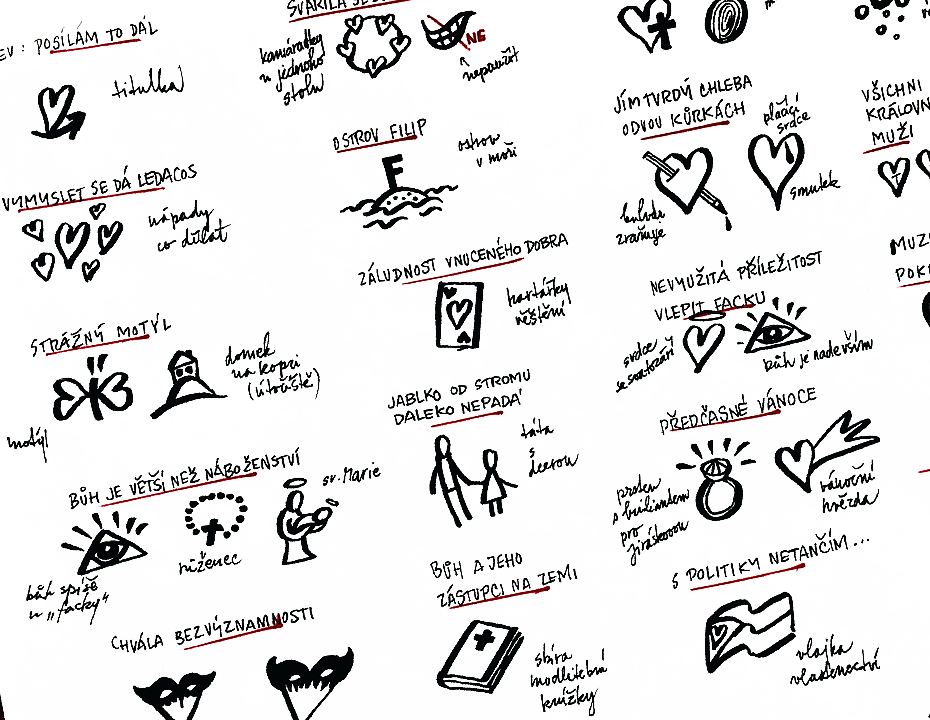 POSÍLÁM TO DÁL
titulka
VYMYSLET SE DÁ LEDACOS
nápady
co dělat
STRÁŽNÝ MOTÝL
domek
na kopci
(útočiště)
motýl
BŮH JE VĚTŠÍ NEŽ NÁBOŽENSTVÍ
sv. Marie
růženec
bůh spíše
u „facky“
CHVÁLA BEZVÝZNAMNOSTI
kamarádky
u jednoho
stolu
NE
nepoužít
OSTROV FILIP
F
ostrov
v moři
ZÁLUDNOST VNUCENÉHO DOBRA
kartářky
věštění
JABLKO OD STROMU
DALEKO NEPADÁ
táta
s
dcerou
BŮH A JEHO
ZÁSTUPCI NA ZEMI
sbírka
modlitební
knížky
JÍM TVRDÝ CHLEBA
O DVOU KŮRKÁCH
plačící
srdce
zraňuje
smutek
NEVYUŽITÁ PŘÍLEŽITOST
VLEPIT FACKU
srdce
se svatozáří
bůh je nadevším
PŘEDČASNÉ VÁNOCE
prsten
s briliantem
pro
jiráskovou
vánoční
hvězda
S POLITIKY NETANČÍM...
vlajka
vlastenectví
VŠICHNI
KRÁLOVN
MUŽI